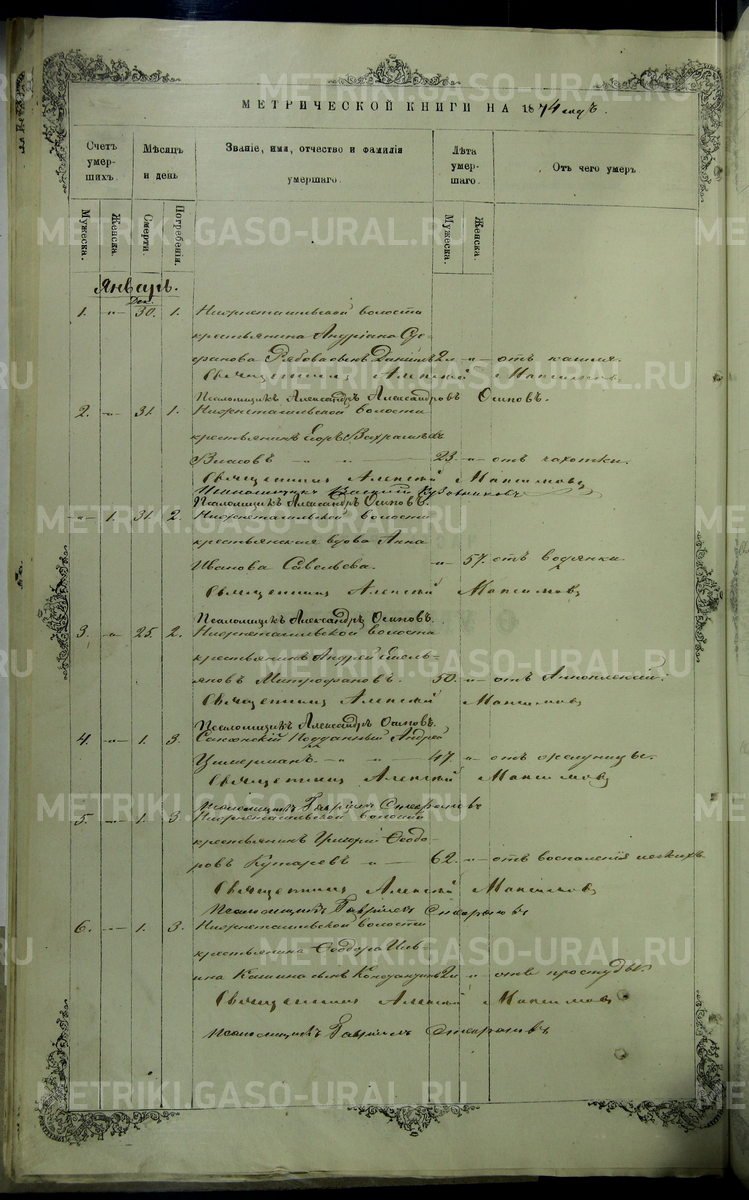 METRIKI.GASO-URAL.RU
МЕТРИЧЕСКОЙ КНИГИ НА 1874 годъ.
Счетъ умер- шихъ.
Мѣсяцъ и день
Званіе, имя, отчество и фамилія умершаго.
Лѣта умер- шаго.
Отъ чего умеръ
Мужеска.
Женска.
Смерти.
Погребенія.
Мужеска.
Женска.
Январь.
Дек.
1. „ 30. 1. Нижнетагильской волости
крестьянина Андріана Сте-
фанова Рябова сынъ Даніилъ 2 „ отъ кашля.
Священникъ Алексій Максимовъ
Псаломщикъ Александръ Александровъ Осиповъ.
2. „ 31. 1. Нижнетагильской волости
крестьянинъ Егоръ
Власовъ 23. „ отъ чахотки.
Священникъ Алексій Максимовъ
Псаломщикъ Александръ Осиповъ.
„ 1. 31. 2. Нижнетагильской волости
крестьянская вдова Анна
Иванова Савельева. „ 57. отъ водянки
Священникъ Алексій Максимовъ
Псаломщикъ Александръ Осиповъ.
3. „ 25. 2. Нижнетагильской волости
крестьянинъ Андрей Емель-
яновъ Митрофановъ. 50. „ отъ Апоплексіи.
Священникъ Алексій Максимовъ
Псаломщикъ Александръ Осиповъ.
4. „ 1. 3. Саксонскій Подданный Андрей
Цимерманъ. 47. „ отъ
Священникъ Алексій Максимовъ
Псаломщикъ Гавріилъ Стефановъ
5. „ 1. 3. Нижнетагильской волости
крестьянинъ Григорій Ѳеодо-
ровъ 62. „ отъ воспаленія легкихъ
Священникъ Алексій Максимовъ
Псаломщикъ Гавріилъ Стефановъ
6. „ 1. 3. Нижнетагильской волости
крестьянина Ѳеодора Иль-
ина Кашина сынъ Константинъ 2 „ отъ простуды.
Священникъ Алексій Максимовъ
Псаломщикъ Гавріилъ Стефановъ